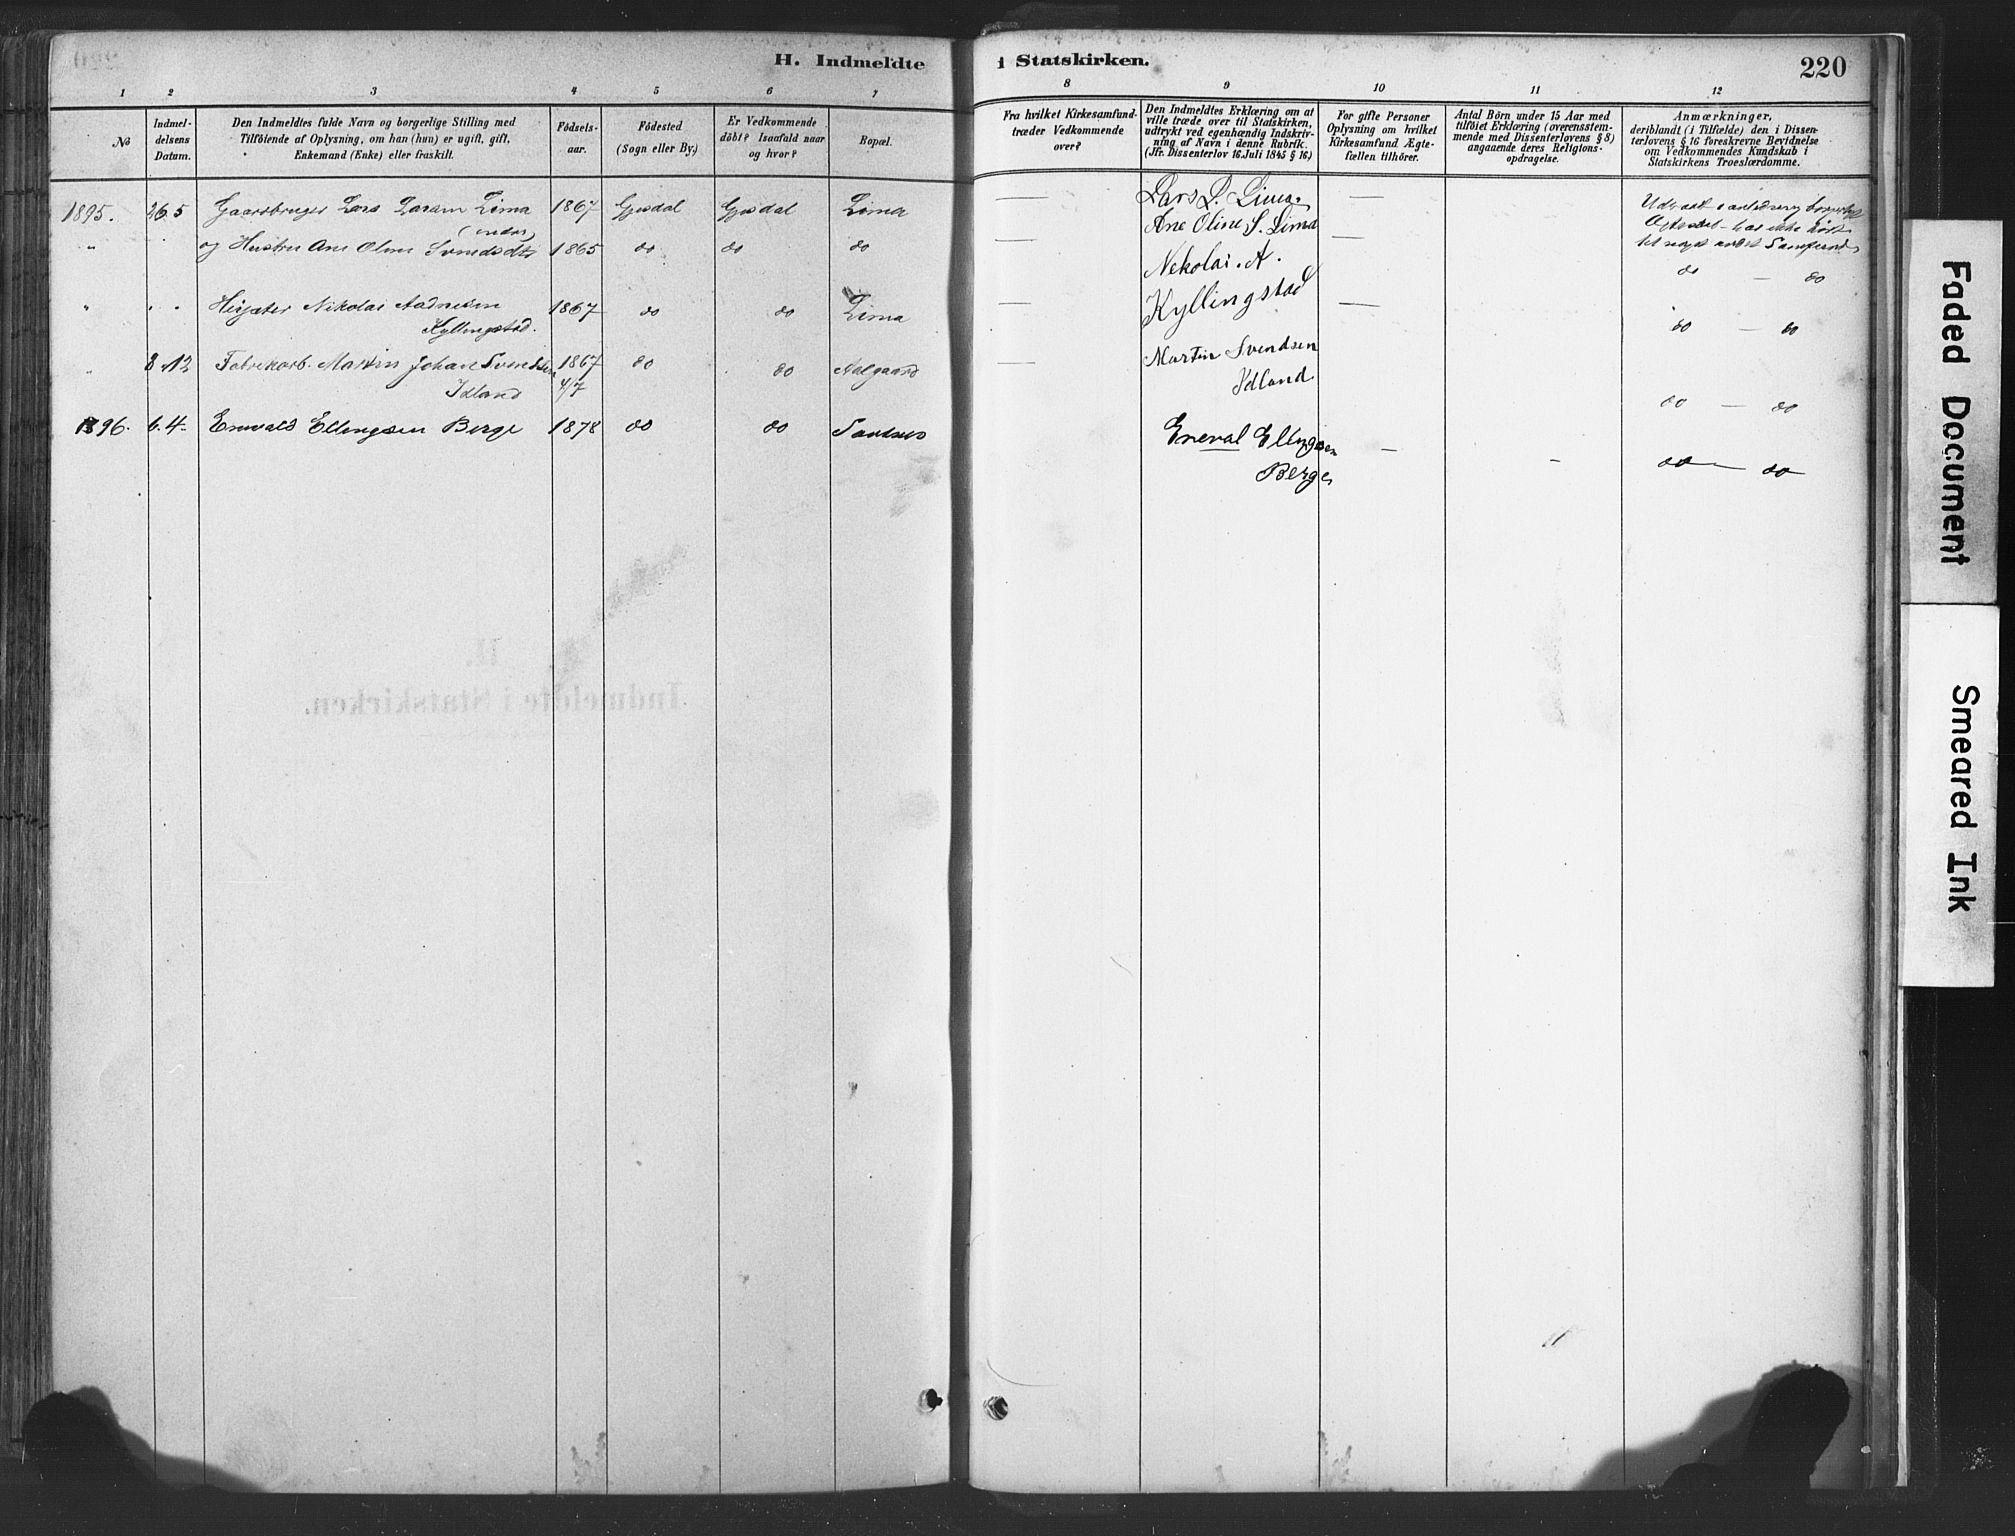 H. Indmeldte i Statskirken. 220
1 2 3 4 5 6 7 8 9 10 11 12
No
Indmel-
delsens
Datum.
Den Indmeldtes fulde Navn og borgerlige Stilling med
Tilföiende af Oplysning, om han (hun) er ugift, gift,
Enkemand (Enke) eller fraskilt.
Födsels-
aar.
Födested
(Sogn eller By.)
Er Vedkommende
döbt? Isaafald naar
og hvor?
Bopæl.
Fra hvilket Kirkesamfund
træder Vedkommende
over?
Den Indmeldtes Erklæring om at
ville træde over til Statskirken,
udtrykt ved egenhændig Indskriv-
ning af Navn i denne Rubrik.
(Jfr. Dissenterlov 16. Juli 1845 § 16.)
For gifte Personer
Oplysning om hvilket
Kirkesamfund Ægte-
fællen tilhörer.
Antal Börn under 15 Aar med
tilföiet Erklæring (overensstem-
mende med Dissenterlovens § 8)
angaaende deres Religions-
opdragelse.
Anmærkninger,
deriblandt (i Tilfælde) den i Dissen-
terlovens § 16 foreskrevne Bevidnelse
om Vedkommendes Kundskab i
Statskirkens Troeslærdomme.
1895. 26 5 Gaardbruger Lars Larsen Lima 1867 Gjesdal Gjesdal Lima — Lars L. Lima. —
" og Hustru Ane Oline Svendsdtr 1865 do do do — Ane Oline S. Lima —
" " Nikolai Aadnesen 1867 do do Lima — Nekolai. A. —
Kyllingstad. Kyllingstad
do — do
" 8 12 Fabrikarb. Martin Johan Svendsen 1867 do do Aalgaard — Martin Svendsen
Idland 4/7 Idland
do — do
1896. 6. 4. Enevald Ellingsen Berge 1878 do do Eneval Ellingsen — —
Berge
do — do
Faded Document
Smeared Ink